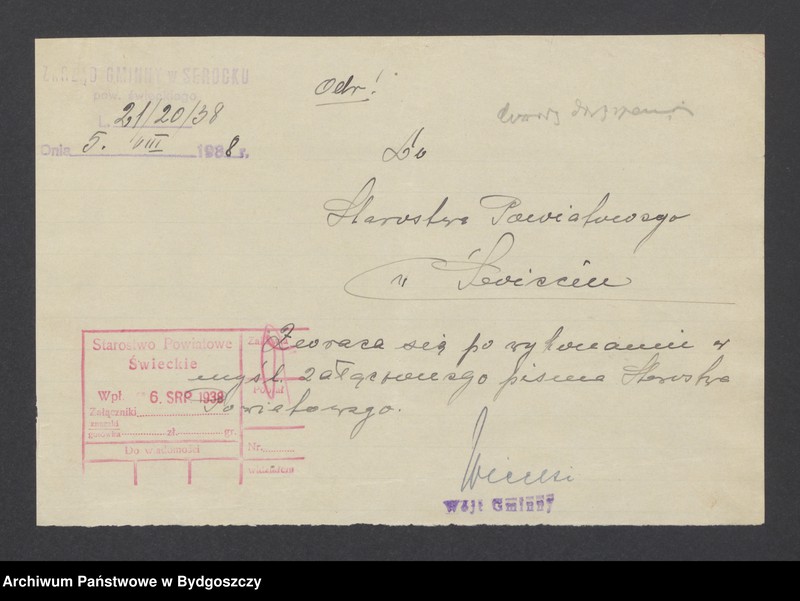 ZARZĄD GMINNY w SEROCKU
pow. świeckiego
L. 21/20/38
Dnia 5. VIII 1938 r.
Odr!
Do
Starostwa Powiatowego
w Świeciu
Zwraca się po wykonaniu w
myśl załączonego pisma Starostwa
Powiatowego.
Starostwo Powiatowe
Świeckie
Wpł. 6. SRP. 1938
Załączniki
znaczki
gotówka zł. gr.
Do wiadomości
Nr.
Wójt Gminny
Archiwum Państwowe w Bydgoszczy